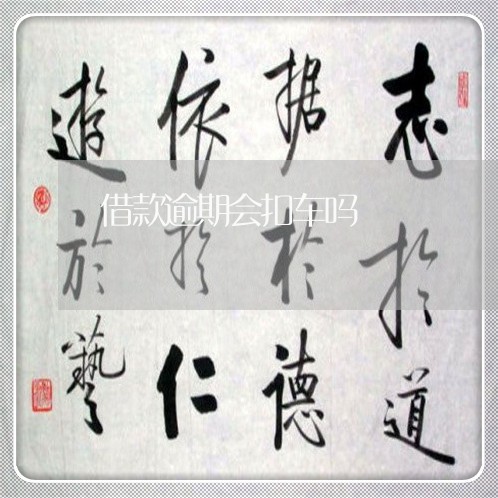 志於道
据於德
依於仁
遊於藝
借款逾期会扣车吗